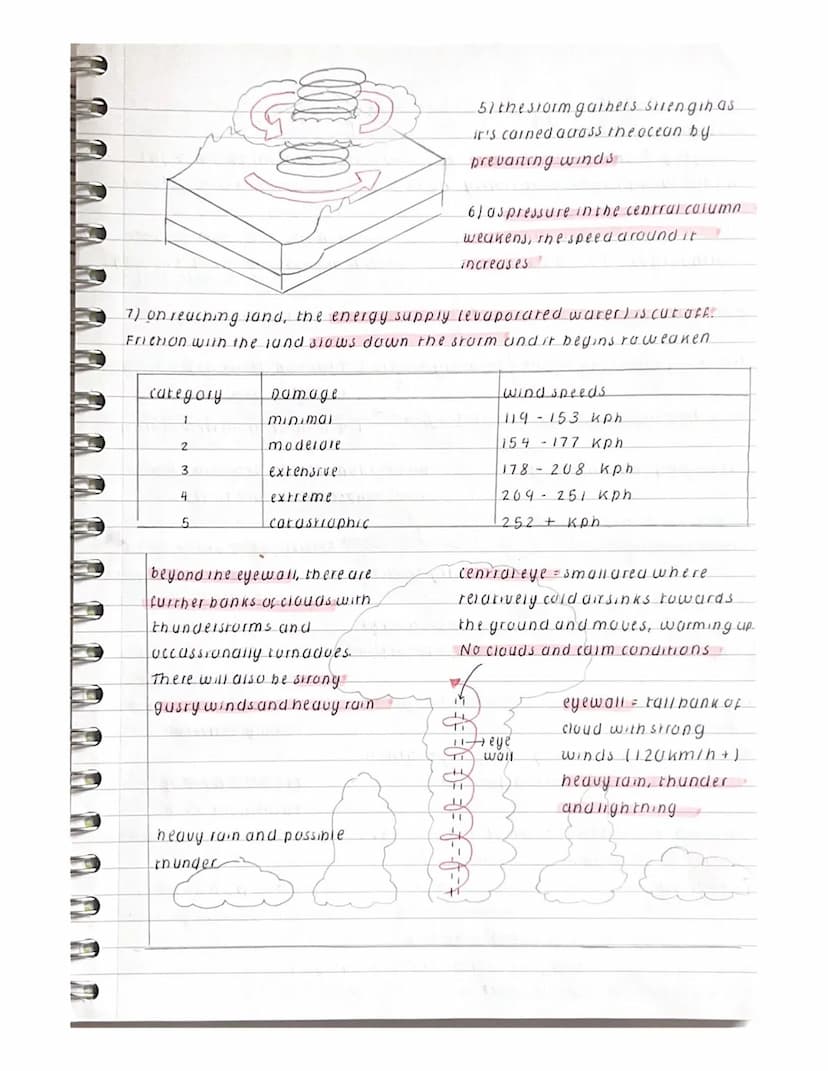 5) the storm gathers strength as
it's carried across the ocean by
prevailing winds
6) as pressure in the central column
weakens, the speed around it
increases
7) on reaching land, the energy supply (evaporated water) is cut off.
Friction with the land slows down the storm and it begins to weaken
category Damage wind speeds
1 minimal 119 - 153 kph
2 moderate 154 - 177 kph
3 extensive 178 - 208 kph
4 extreme 209 - 251 kph
5 catastrophic 252 + kph
beyond the eyewall, there are
further banks of clouds with
thunderstorms and
occassionally tornadoes.
There will also be strong
gusty winds and heavy rain
central eye = small area where
relatively cold air sinks towards
the ground and moves, warming up.
No clouds and calm conditions
eye
wall
eyewall = tall bank of
cloud with strong
winds (120km/h+)
heavy rain, thunder
and lightning
heavy rain and possible
thunder